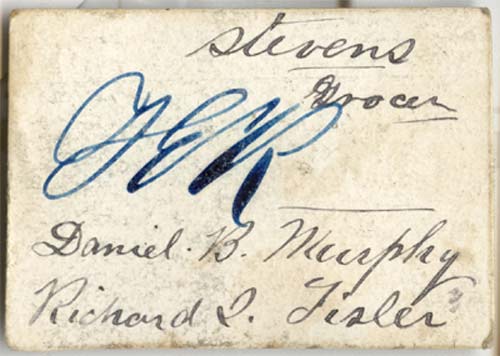 Stevens
Grocer
Daniel. B. Murphy
Richard I. Tisler